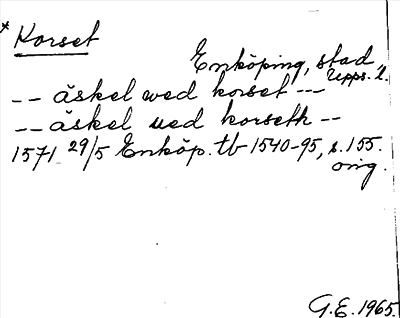 * Korset
Enköping, stad
Upps. l.
-- åskel wed korset ---
-- åskel ued korseth --
1571 29/5 Enköp. tb 1540-95, s. 155.
orig.
G.E. 1965.